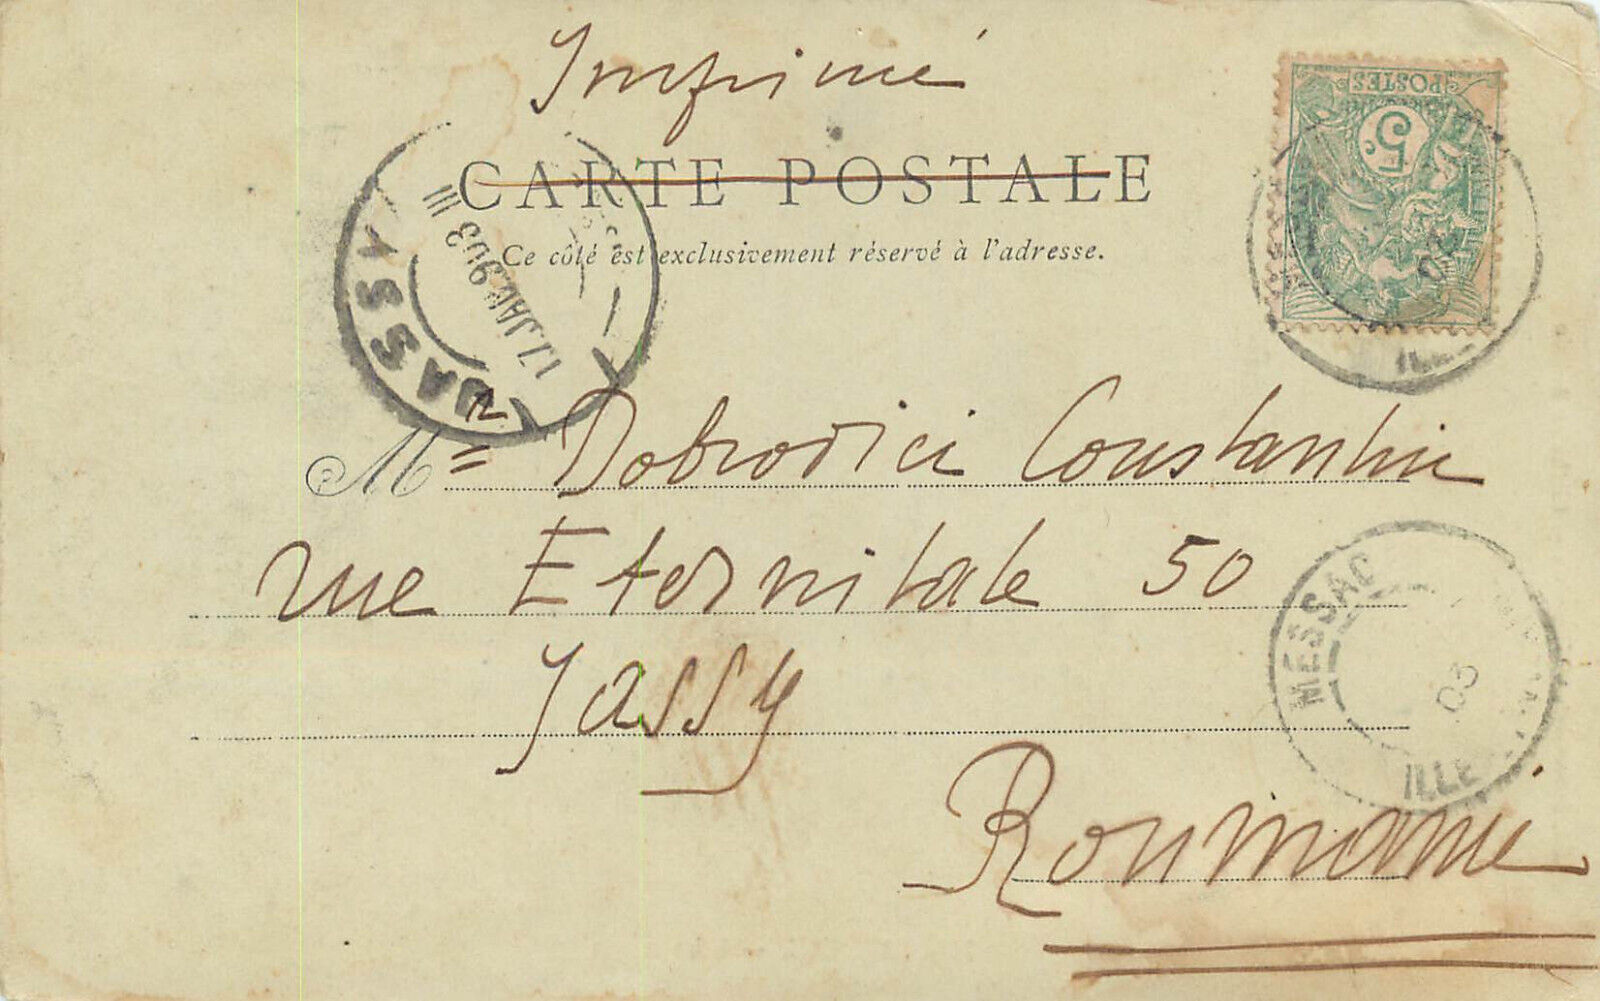 Imprimé
CARTE POSTALE
Ce côté est exclusivement réservé à l'adresse.
POSTES
5c
JASSY
17.JAN.903
III
Mr Dobrodici Constantin
rue Eternitate 50
Jassy
Roumanie
MESSAC
03
ILLE